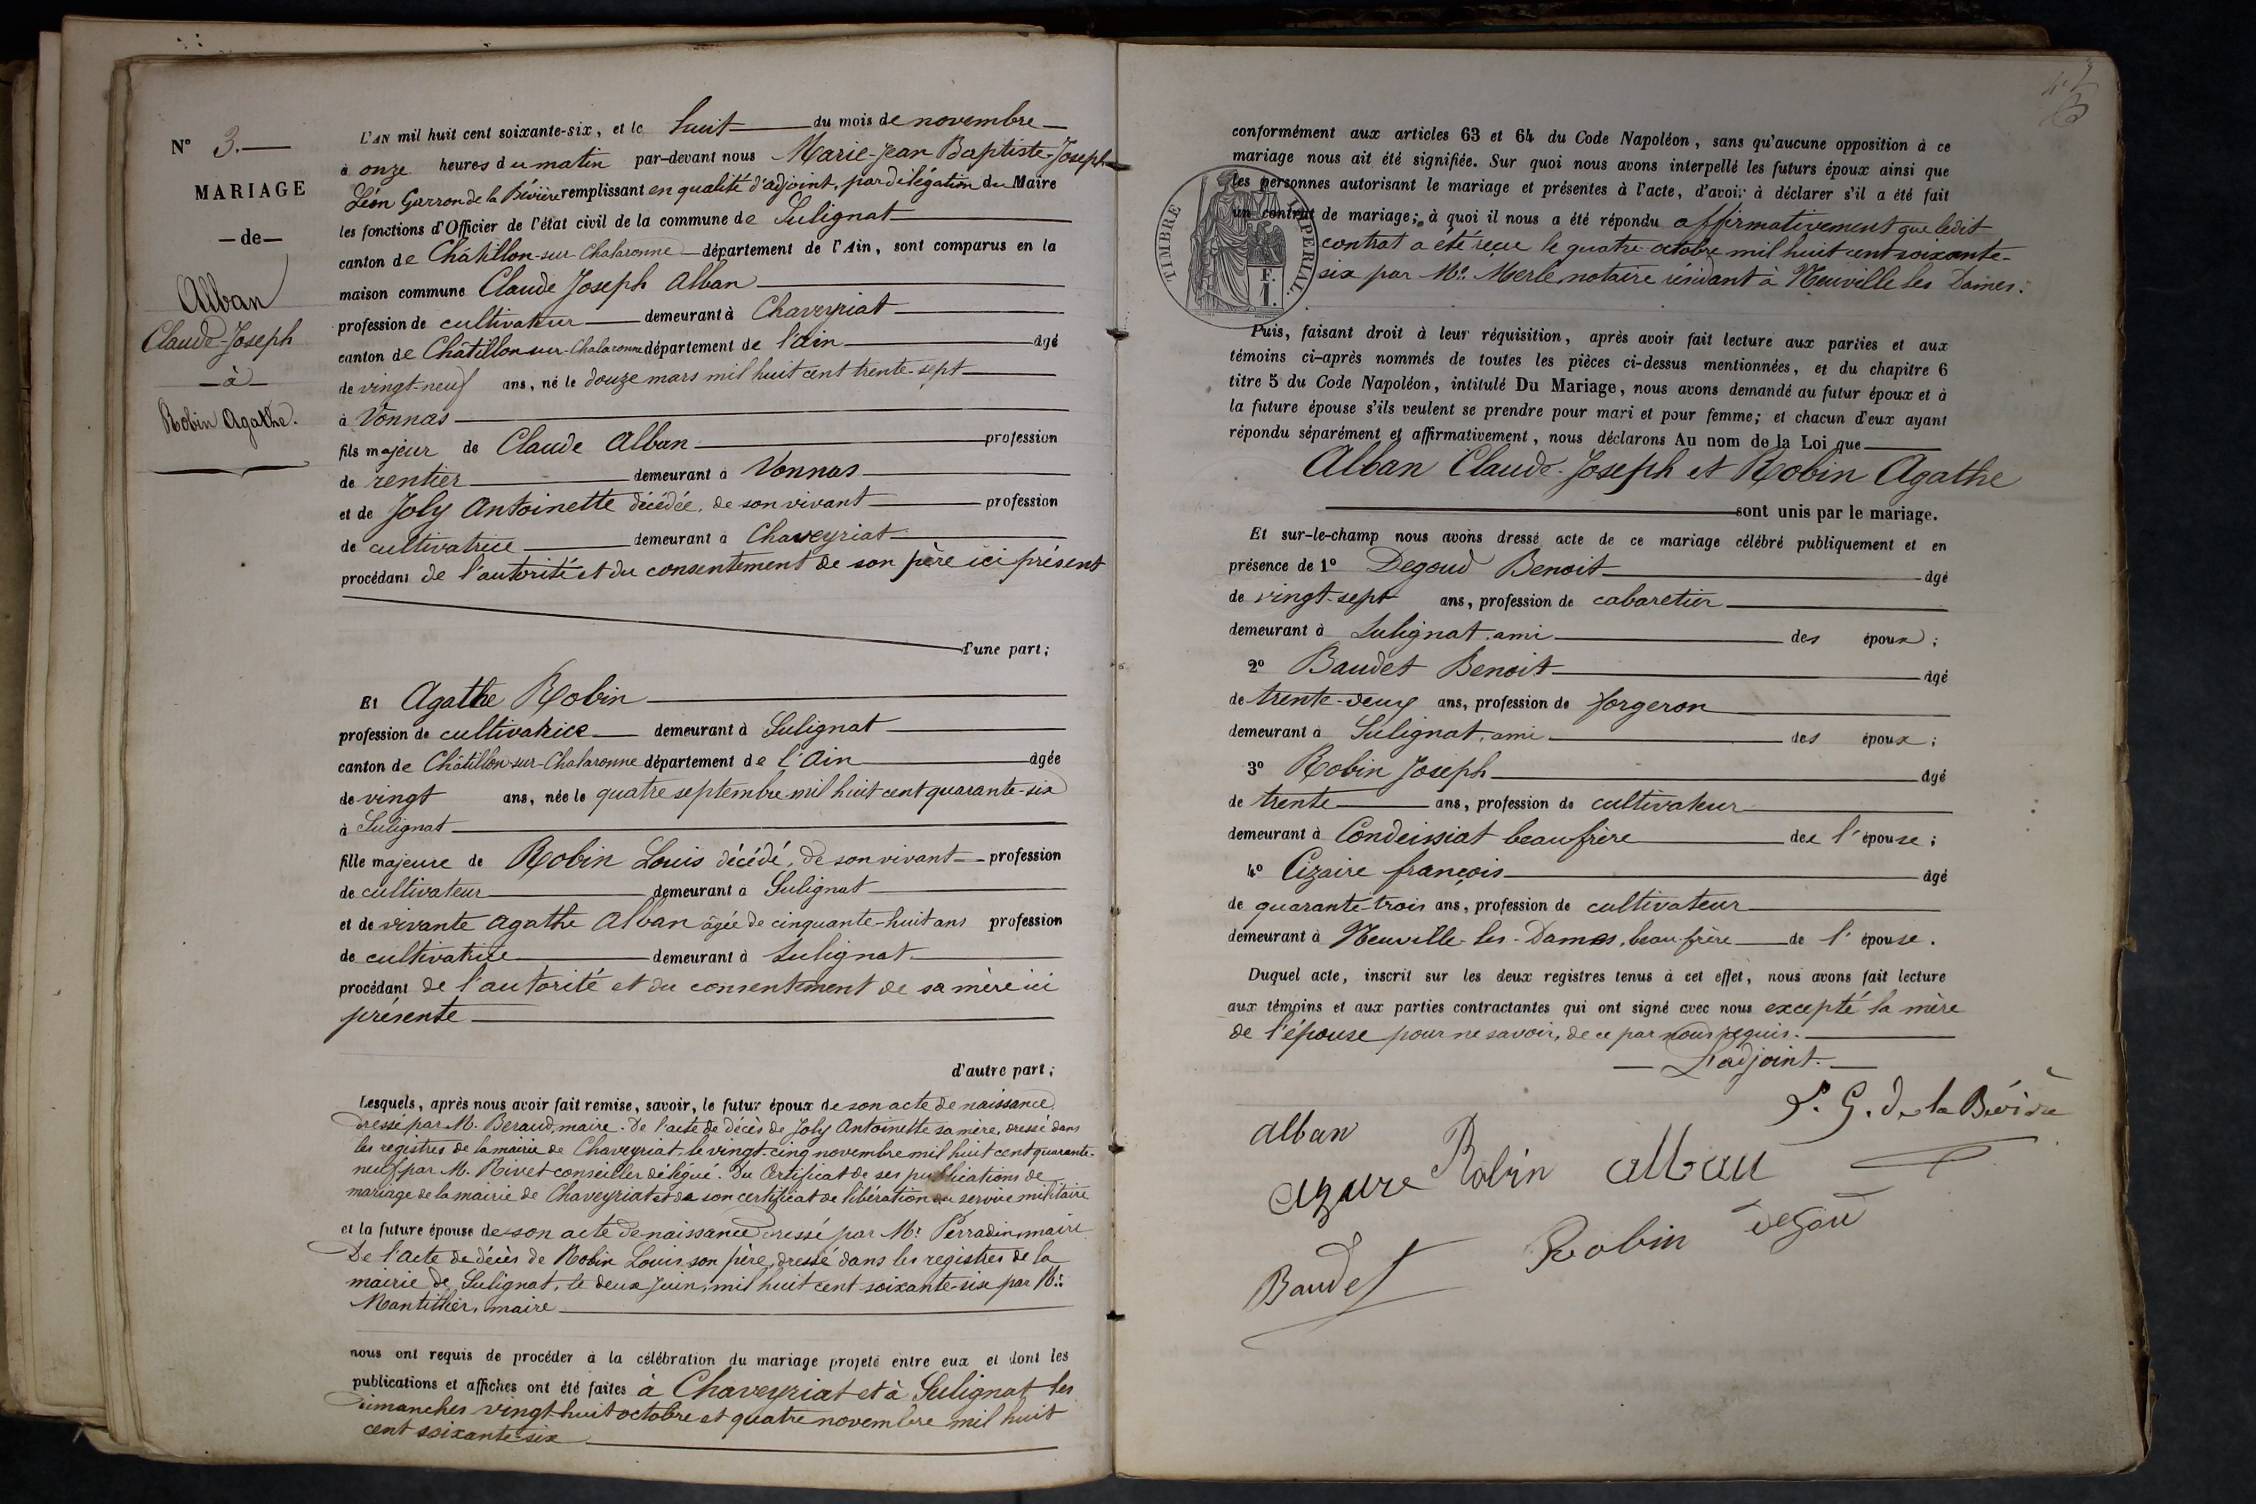 N° 3.
MARIAGE
—de—
Alban
Claude-Joseph
—à—
Robin Agathe.
L'AN mil huit cent soixante-six, et le huit du mois de novembre
à onze heures du matin par-devant nous Marie-Jean Baptiste-Joseph
Léon Garron de la Bévière remplissant en qualité d'adjoint, par délégation du Maire
les fonctions d'Officier de l'état civil de la commune de Sulignat
canton de Châtillon-sur-Chalaronne département de l'Ain, sont comparus en la
maison commune Claude Joseph Alban
profession de cultivateur demeurant à Chaveyriat
canton de Châtillon-sur-Chalaronne département de l'ain âgé
de vingt-neuf ans, né le douze mars mil huit cent trente-sept
à Vonnas
fils majeur de Claude Alban profession
de rentier demeurant à Vonnas
et de Joly Antoinette décédée, de son vivant profession
de cultivatrice demeurant à Chaveyriat
procédant de l'autorité et du consentement de son père ici présent
d'une part;
Et Agathe Robin
profession de cultivatrice demeurant à Sulignat
canton de Châtillon-sur-Chalaronne département de l'Ain âgée
de vingt ans, née le quatre septembre mil huit cent quarante-six
à Sulignat
fille majeure de Robin Louis décédé, de son vivant profession
de cultivateur demeurant à Sulignat
et de vivante Agathe Alban âgée de cinquante-huit ans profession
de cultivatrice demeurant à Sulignat
procédant de l'autorité et du consentement de sa mère ici
présente
d'autre part;
Lesquels, après nous avoir fait remise, savoir, le futur époux de son acte de naissance
dressé par M. Beraud, maire. De l'acte de décès de Joly Antoinette sa mère, dressé dans
les registres de la mairie de Chaveyriat, le vingt-cinq novembre mil huit cent quarante-
neuf par M. Rivet conseiller délégué. Du Certificat de ses publications de
mariage de la mairie de Chaveyriat et de son certificat de libération du service militaire
et la future épouse de son acte de naissance dressé par Mr Perradin, maire
De l'acte de décès de Robin Louis, son père, dressé dans les registres de la
mairie de Sulignat, le deux juin, mil huit cent soixante-six par Mr
Mantillier, maire
nous ont requis de procéder à la célébration du mariage projeté entre eux et dont les
publications et affiches ont été faites à Chaveyriat et à Sulignat les
dimanches vingt-huit octobre et quatre novembre mil huit
cent soixante-six
TIMBRE IMPERIAL.
F.
1.
conformément aux articles 63 et 64 du Code Napoléon, sans qu'aucune opposition à ce
mariage nous ait été signifiée. Sur quoi nous avons interpellé les futurs époux ainsi que
les personnes autorisant le mariage et présentes à l'acte, d'avoir à déclarer s'il a été fait
un contrat de mariage; à quoi il nous a été répondu affirmativement que ledit
contrat a été reçu le quatre octobre mil huit cent soixante-
six par Me Merle notaire résidant à Neuville les Dames.
Puis, faisant droit à leur réquisition, après avoir fait lecture aux parties et aux
témoins ci-après nommés de toutes les pièces ci-dessus mentionnées, et du chapitre 6
titre 5 du Code Napoléon, intitulé Du Mariage, nous avons demandé au futur époux et à
la future épouse s'ils veulent se prendre pour mari et pour femme; et chacun d'eux ayant
répondu séparément et affirmativement, nous déclarons Au nom de la Loi que
Alban Claude-Joseph et Robin Agathe
sont unis par le mariage.
Et sur-le-champ nous avons dressé acte de ce mariage célébré publiquement et en
présence de 1° Degoud Benoit âgé
de vingt-sept ans, profession de cabaretier
demeurant à Sulignat, ami des époux;
2° Baudet Benoit âgé
de trente-deux ans, profession de forgeron
demeurant à Sulignat, ami des époux;
3° Robin Joseph âgé
de trente ans, profession de cultivateur
demeurant à Condeissiat beau frère de l'épouse;
4° Cizaire françois âgé
de quarante-trois ans, profession de cultivateur
demeurant à Neuville-les-Dames, beau-frère de l'épouse.
Duquel acte, inscrit sur les deux registres tenus à cet effet, nous avons fait lecture
aux témoins et aux parties contractantes qui ont signé avec nous excepté la mère
de l'épouse pour ne savoir, de ce par nous requis.
L'adjoint.
L. G. de la Bévière
alban
Robin alban
Robin degou
Baudet